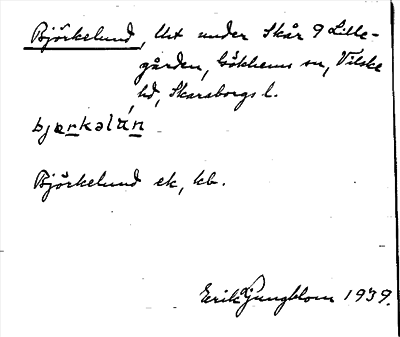 Björkelund, lht under Skår 9 Lille-
gården, Gökhems sn, Vilske
hd, Skaraborgs l.
bjærkəlán
Björkelund ek, kb.
Erik Ljungblom 1939.